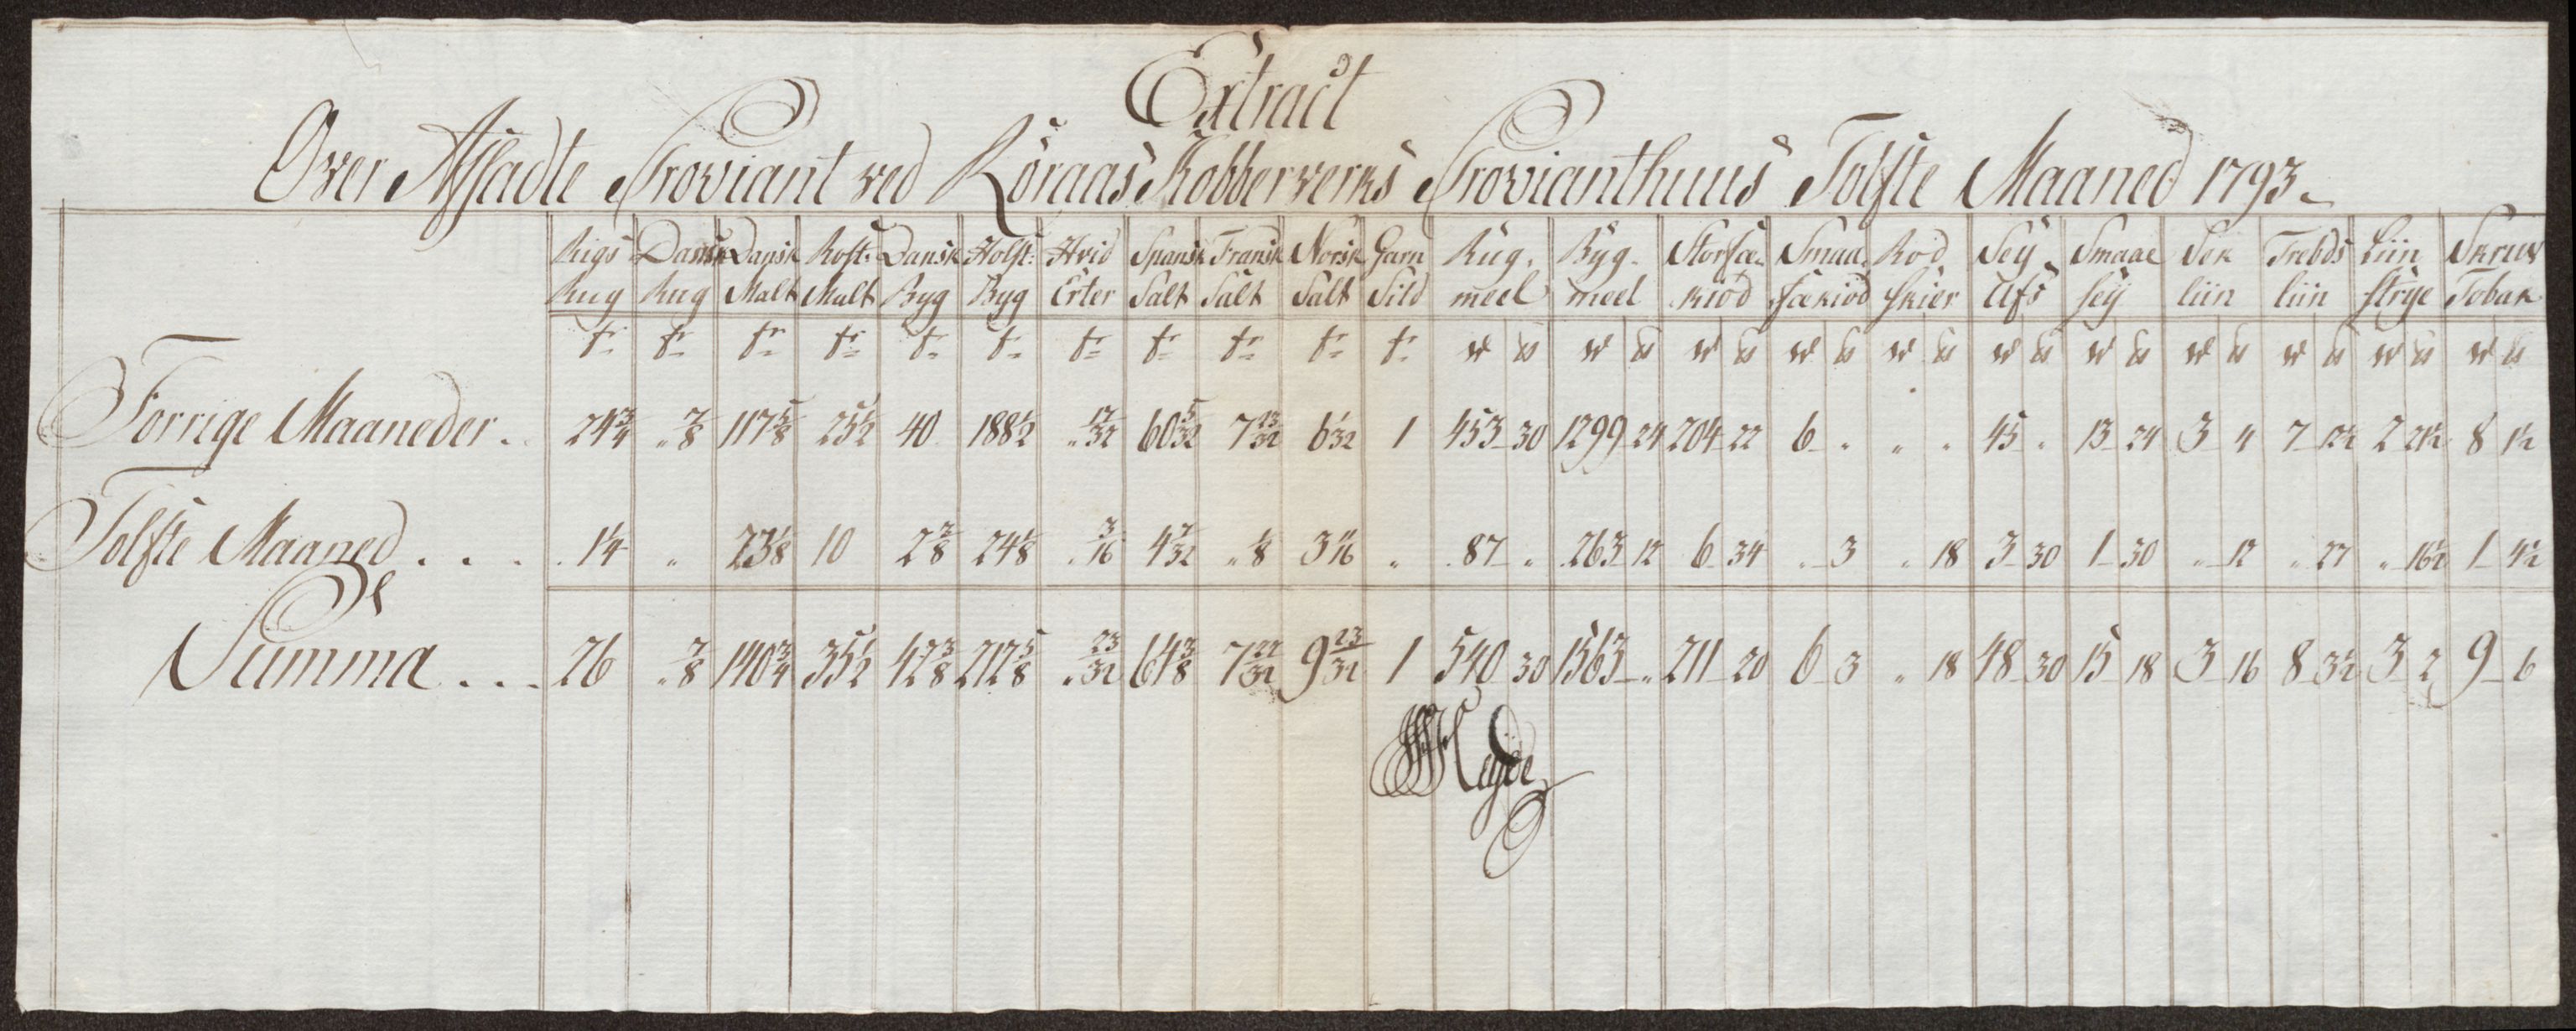 Extract
Over Afsadte Proviant ved Röraas Kobberverks Provianthuus Tolfte Maaned 1793.
Rigs Rug | Dansk Rug | Dansk Malt | Rost: Malt | Dansk Byg | Holst: Byg | Hvid Erter | Spansk Salt | Fransk Salt | Norsk Salt | Garn Sild | Rug. meel | Byg. meel | Storfæ. kiöd | Smaa. fækiöd | Rod skier | Sey Ufs | Smaae sey | Sek liin | Trebds liin | Liin strye | Skruv Tobak
Forrige Maaneder . 24 3/4 | „ 7/8 | 117 5/8 | 25 1/2 | 40 | 188 1/2 | „ 17/32 | 60 5/32 | 7 23/32 | 6 1/32 | 1 | 453 30 | 1299 24 | 204 22 | 6 „ | „ „ | 45 „ | 13 24 | 3 4 | 7 12 1/2 | 2 21 1/2 | 8 1 1/2
Tolfte Maaned . . . 1 1/4 | „ | 23 1/8 | 10 | 2 3/8 | 24 1/8 | „ 3/16 | 4 7/32 | „ 1/8 | 3 11/16 | „ | 87 „ | 263 12 | 6 34 | „ 3 | „ 18 | 3 30 | 1 30 | „ 12 | „ 27 | „ 16 1/2 | 1 4 1/2
Summa . . . 26 | „ 7/8 | 140 3/4 | 35 1/2 | 42 3/8 | 212 5/8 | „ 23/32 | 64 3/8 | 7 27/32 | 9 23/32 | 1 | 540 30 | 1563 „ | 211 20 | 6 3 | „ 18 | 48 30 | 15 18 | 3 16 | 8 3 1/2 | 3 2 | 9 6
Heyde